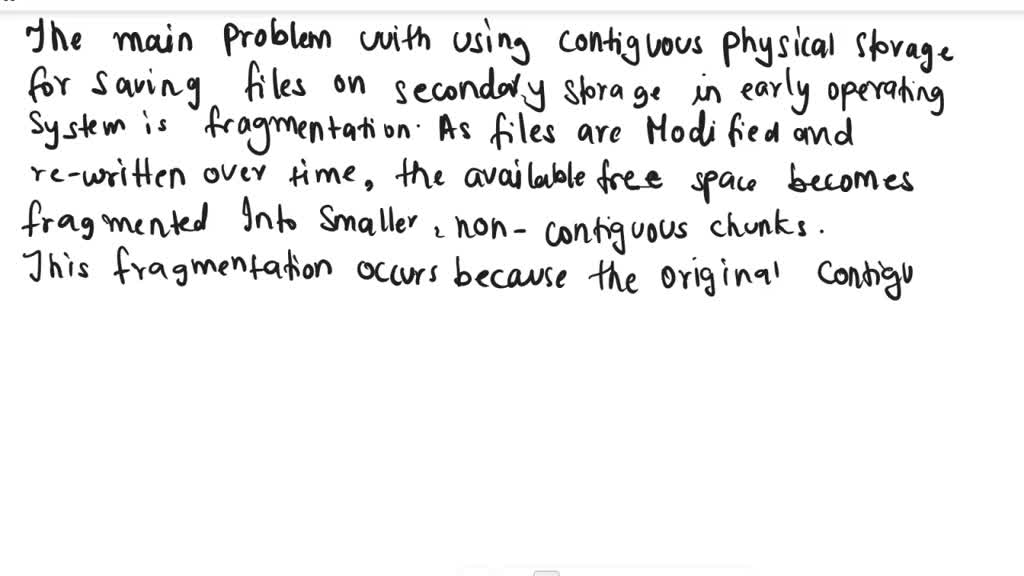 The main problem with using contiguous physical storage
for saving files on secondary storage in early operating
System is fragmentation. As files are Modified and
re-written over time, the available free space becomes
fragmented Into smaller, non-contiguous chunks.
This fragmentation occurs because the original Contigu